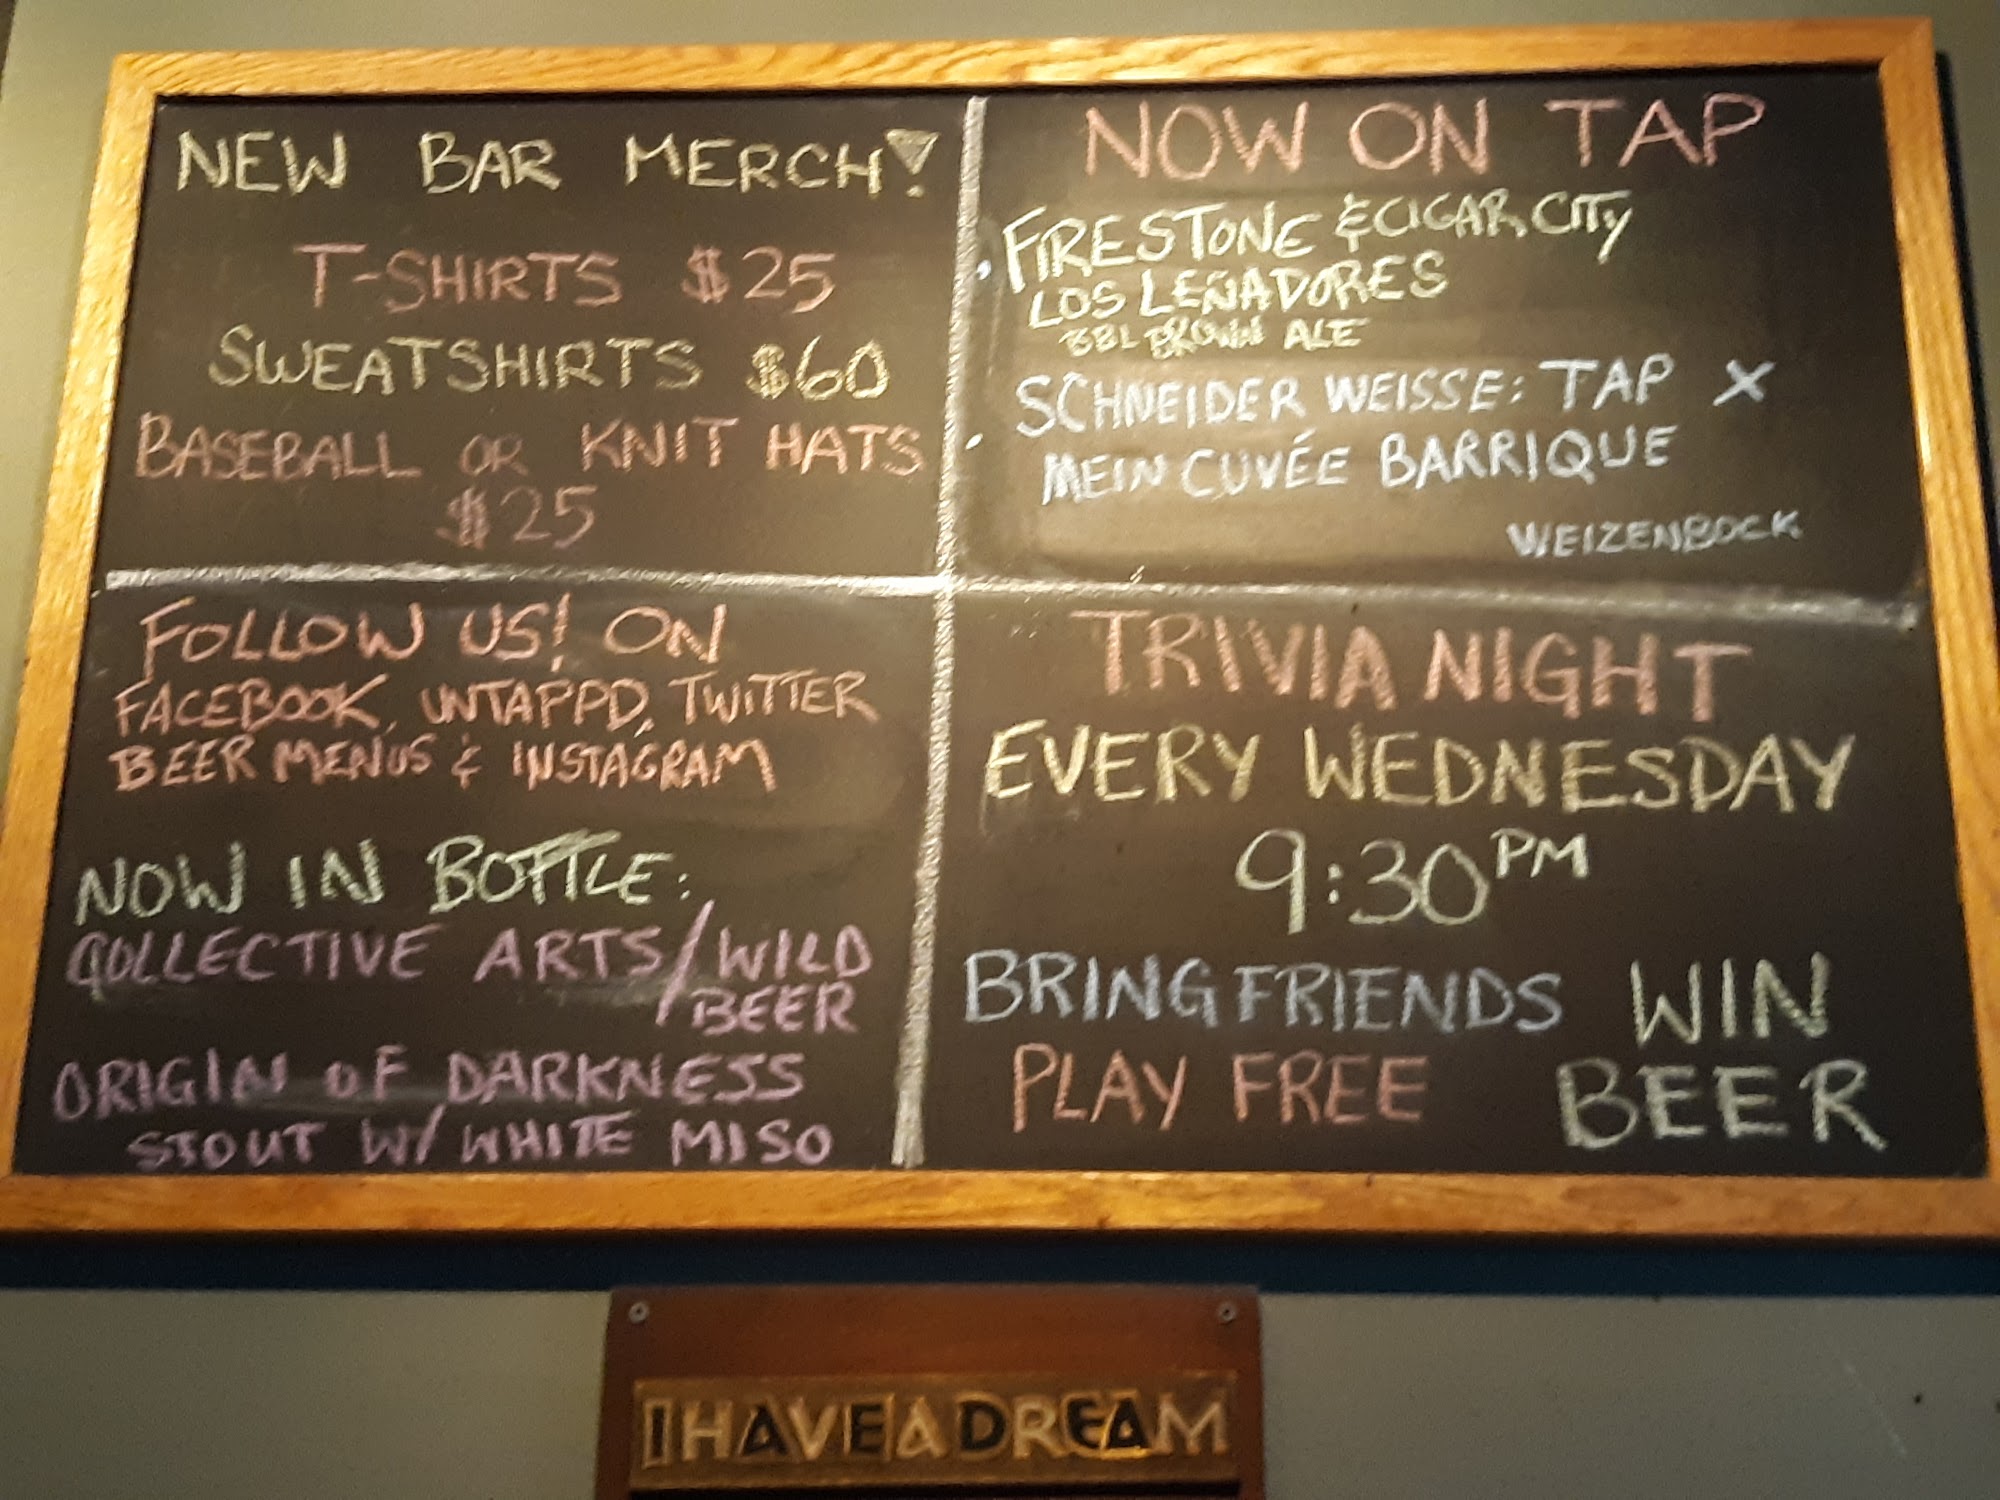 NEW BAR MERCH!
T-SHIRTS $25
SWEATSHIRTS $60
BASEBALL OR KNIT HATS
$25
NOW ON TAP
• FIRESTONE & CIGAR CITY
LOS LEÑADORES
BBL BROWN ALE
• SCHNEIDER WEISSE: TAP X
MEIN CUVÉE BARRIQUE
WEIZENBOCK
FOLLOW US! ON
FACEBOOK, UNTAPPD, TWITTER
BEER MENUS & INSTAGRAM
NOW IN BOTTLE:
COLLECTIVE ARTS/WILD
BEER
ORIGIN OF DARKNESS
STOUT W/ WHITE MISO
TRIVIA NIGHT
EVERY WEDNESDAY
9:30 PM
BRING FRIENDS
PLAY FREE
WIN
BEER
I HAVE A DREAM